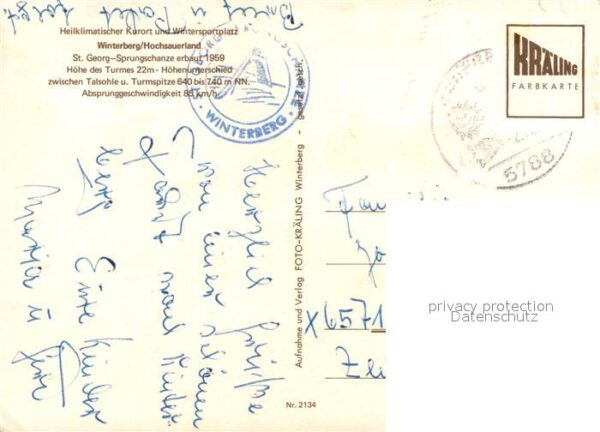 Heilklimatischer Kurort und Wintersportplatz
Winterberg/Hochsauerland
St. Georg-Sprungschanze erbaut 1959
Höhe des Turmes 22m - Höhenunterschied
zwischen Talsohle u. Turmspitze 640 bis 740 m NN.
Absprunggeschwindigkeit 85 km/h
WINTERBERG
KRÄLING
FARBKARTE
5788
Aufnahme und Verlag FOTO-KRÄLING Winterberg - gesetzl. gesch.
Herzliche Grüße
von einer schönen
Fahrt nach Winter-
berg Eure Kinder
x6571
privacy protection
Datenschutz
Nr. 2134